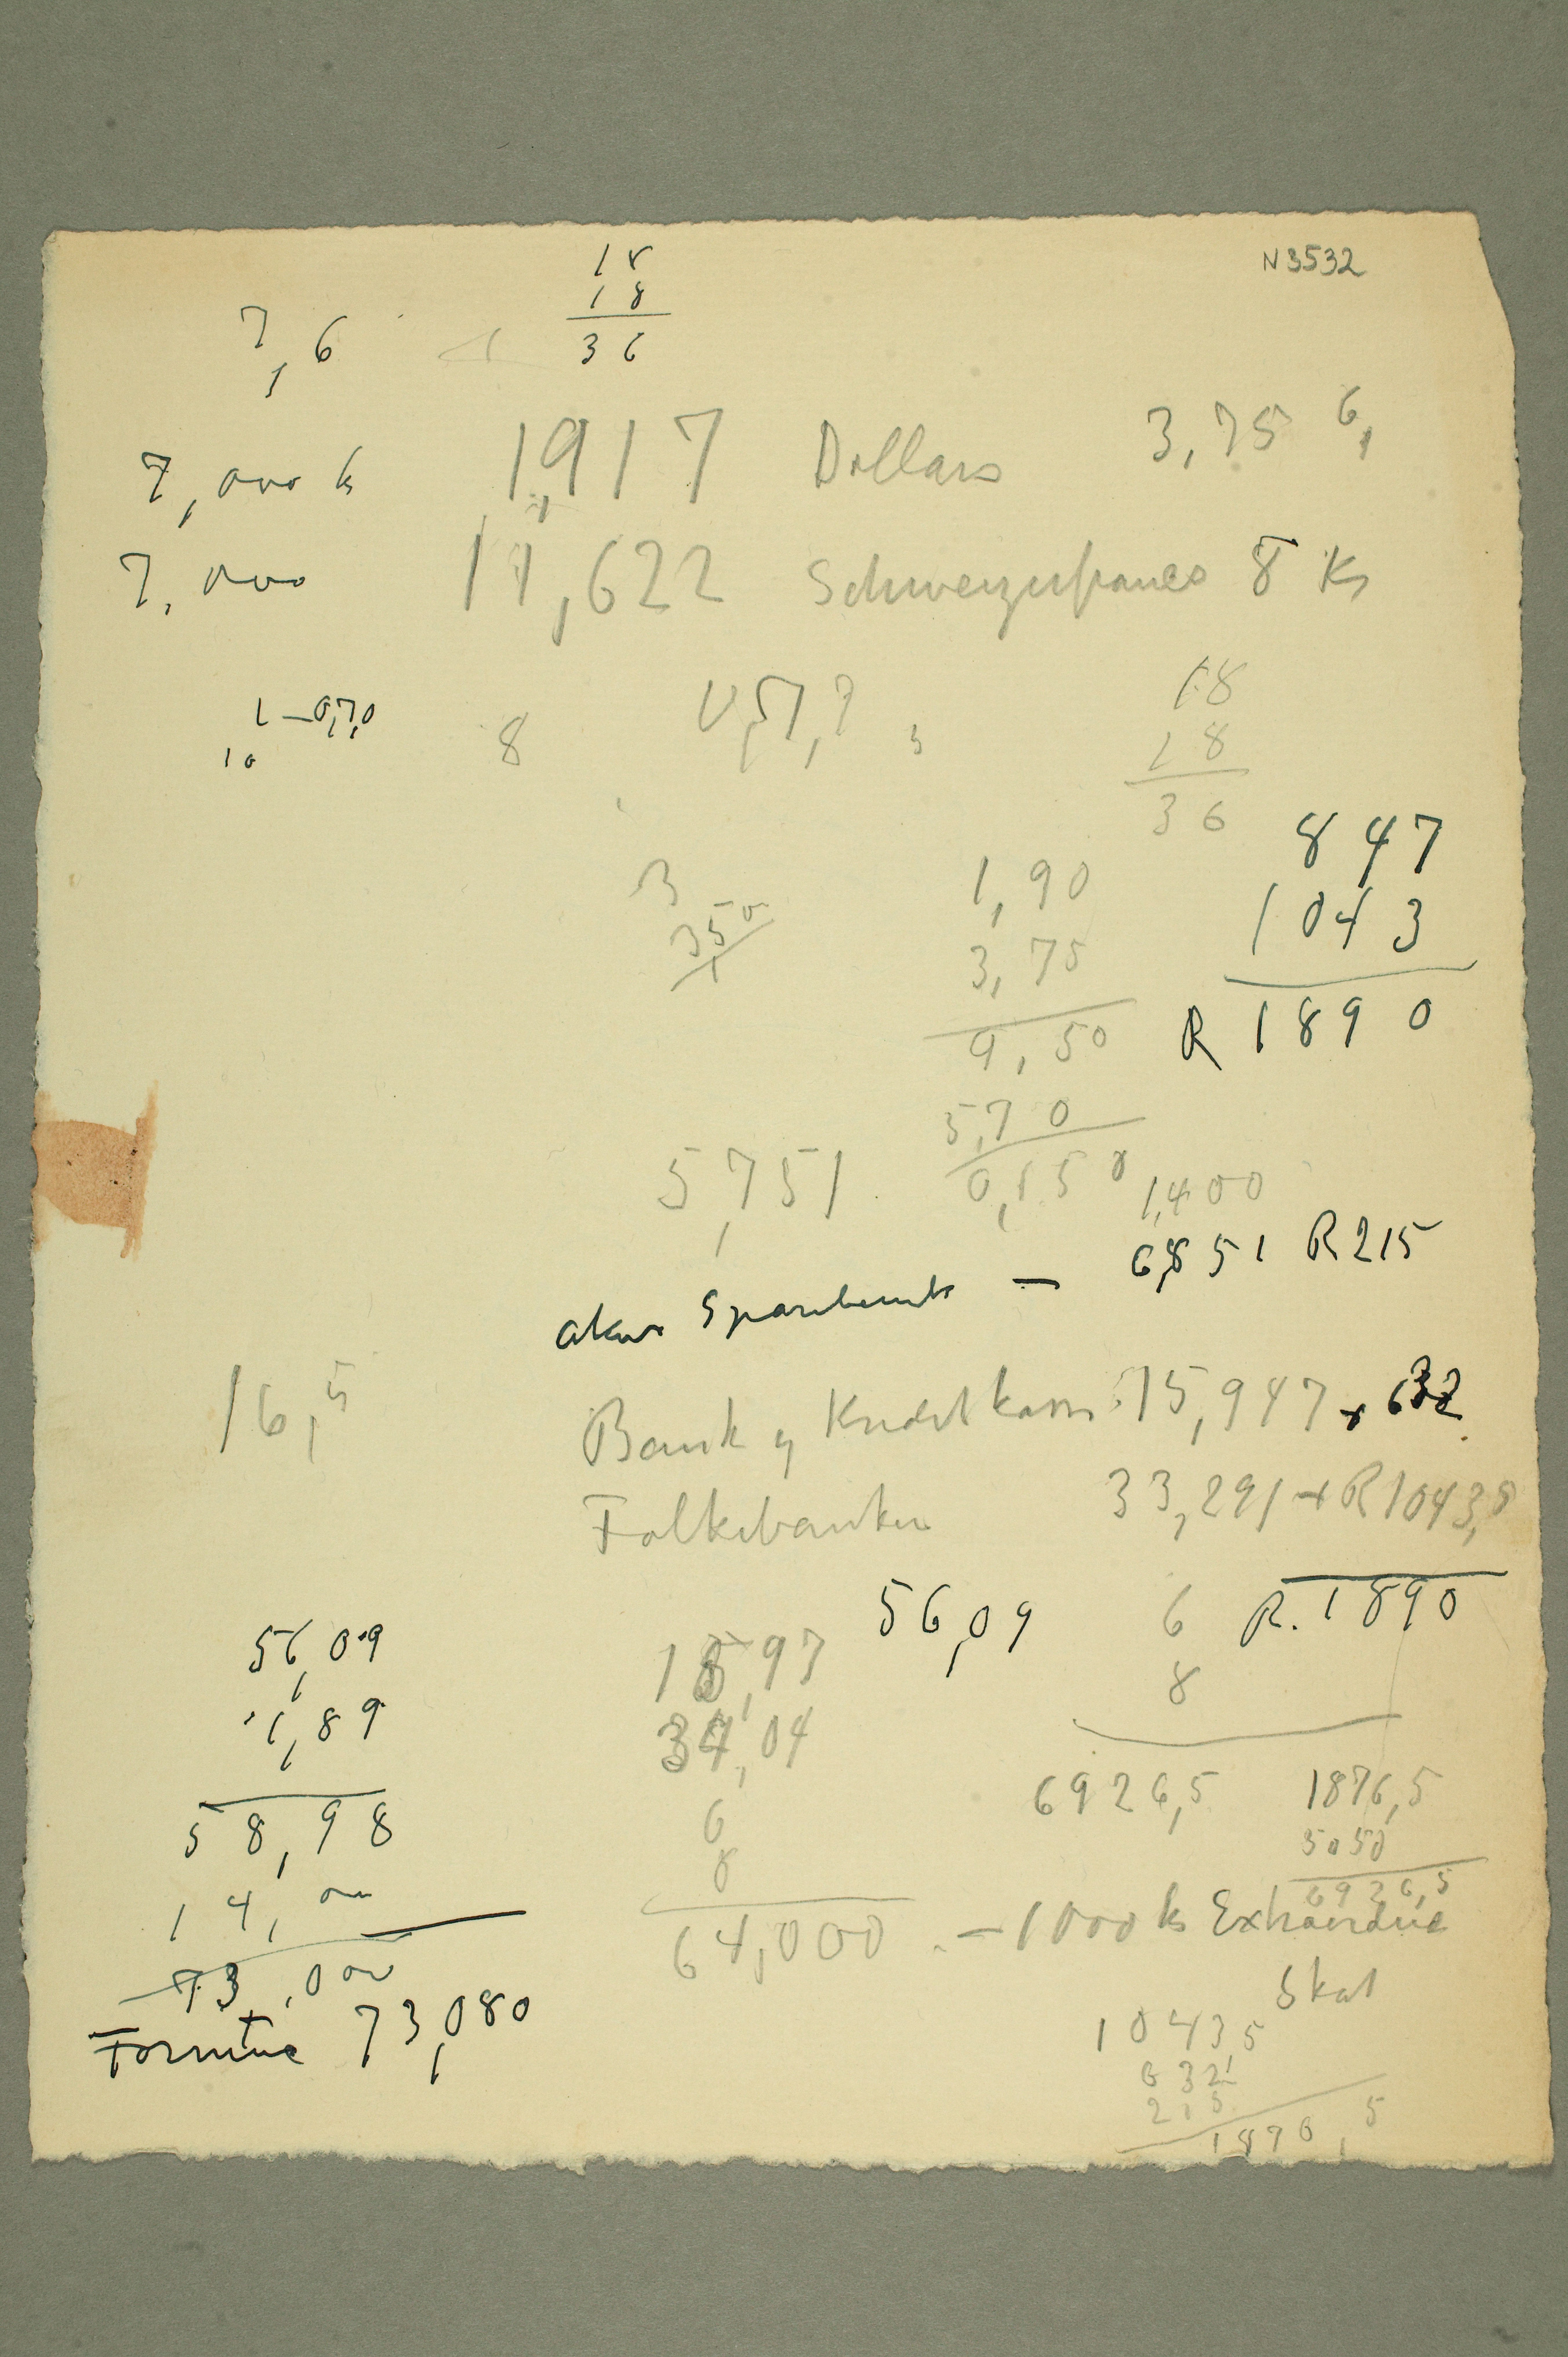 18
N3532
18
7,6
36
3,75 6,
7,000 k 1,917 Dollars
7,000 11,622 Schweizerfrancs 8 Ks
18
1 – 0,7,0
10
8
18
36
847
3
1,90
1043
350
3,75
R 1890
9,50
5,70
5,751
0,150
1,400
6,851 R 215
Aker Sparebank –
16,5
Bank og Kreditkasse 15,947 + 632
Folkebanken 33,291 + R 1043,5
56,09
6
R. 1890
56,09
18,97
8
1,89
34,04
6926,5
1876,5
58,98
6
5050
8
6926,5
14,000
64,000 – 1000 k Extraordine
73,000
Skat
Formue 73,080
1043,5
632
215
1876,5